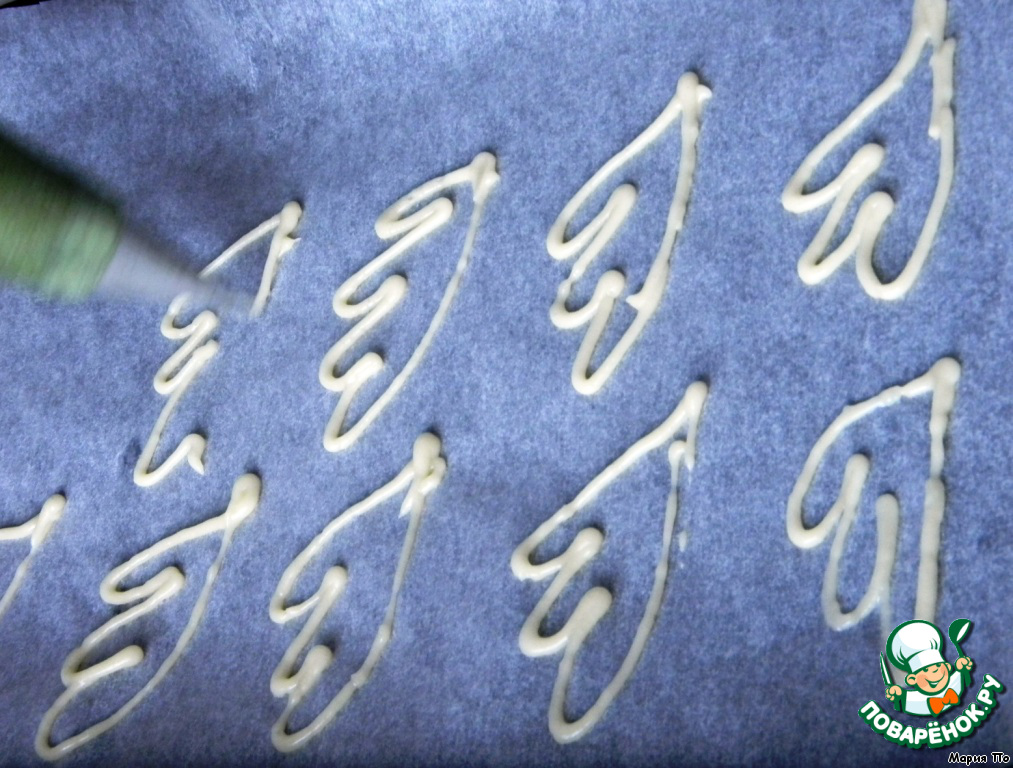 ПОВАРЁНОК.РУ
Мария По